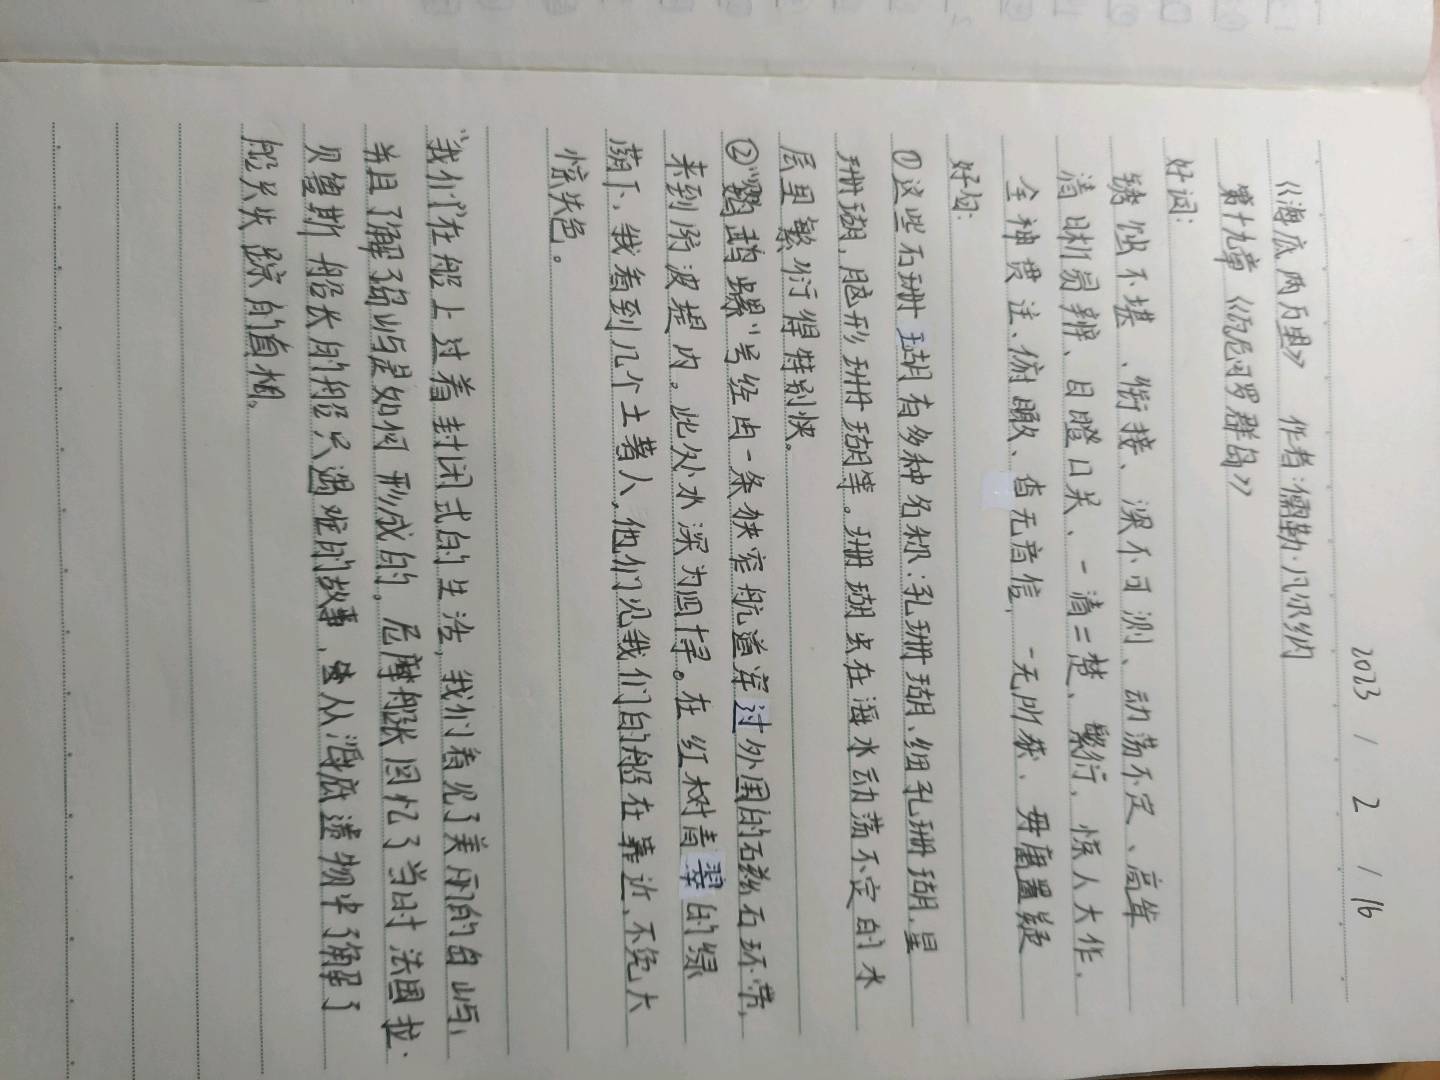 2023 / 2 / 16
《海底两万里》 作者:儒勒·凡尔纳
第十九章《瓦尼可罗群岛》
好词:
锈蚀不堪、衔接、深不可测、动荡不定、高耸
清目明辨、目瞪口呆、一清二楚、繁衍、惊人大作、
全神贯注、俯瞰、杳无音信、一无所获、毋庸置疑
好句:
①这些石珊瑚有多种名称:孔珊瑚、细孔珊瑚、星
珊瑚、脑形珊瑚等。珊瑚虫在海水动荡不定的水
层里繁衍得特别快。
②“鹦鹉螺”号经由一条狭窄航道穿过外围的石松石环带,
来到防波堤内。此处水深为四十寻。在红树青翠的绿
荫下、我看到几个土著人,他们见我们的船在靠近、不免大
惊失色。
“我们”在船上过着封闭式的生活,我们看见了美丽的岛屿,
并且了解了岛屿是如何形成的。尼摩船长回忆了当时法国拉·
贝鲁斯船长的船只遇难的故事、从海底遗物中了解了
船只失踪的真相。